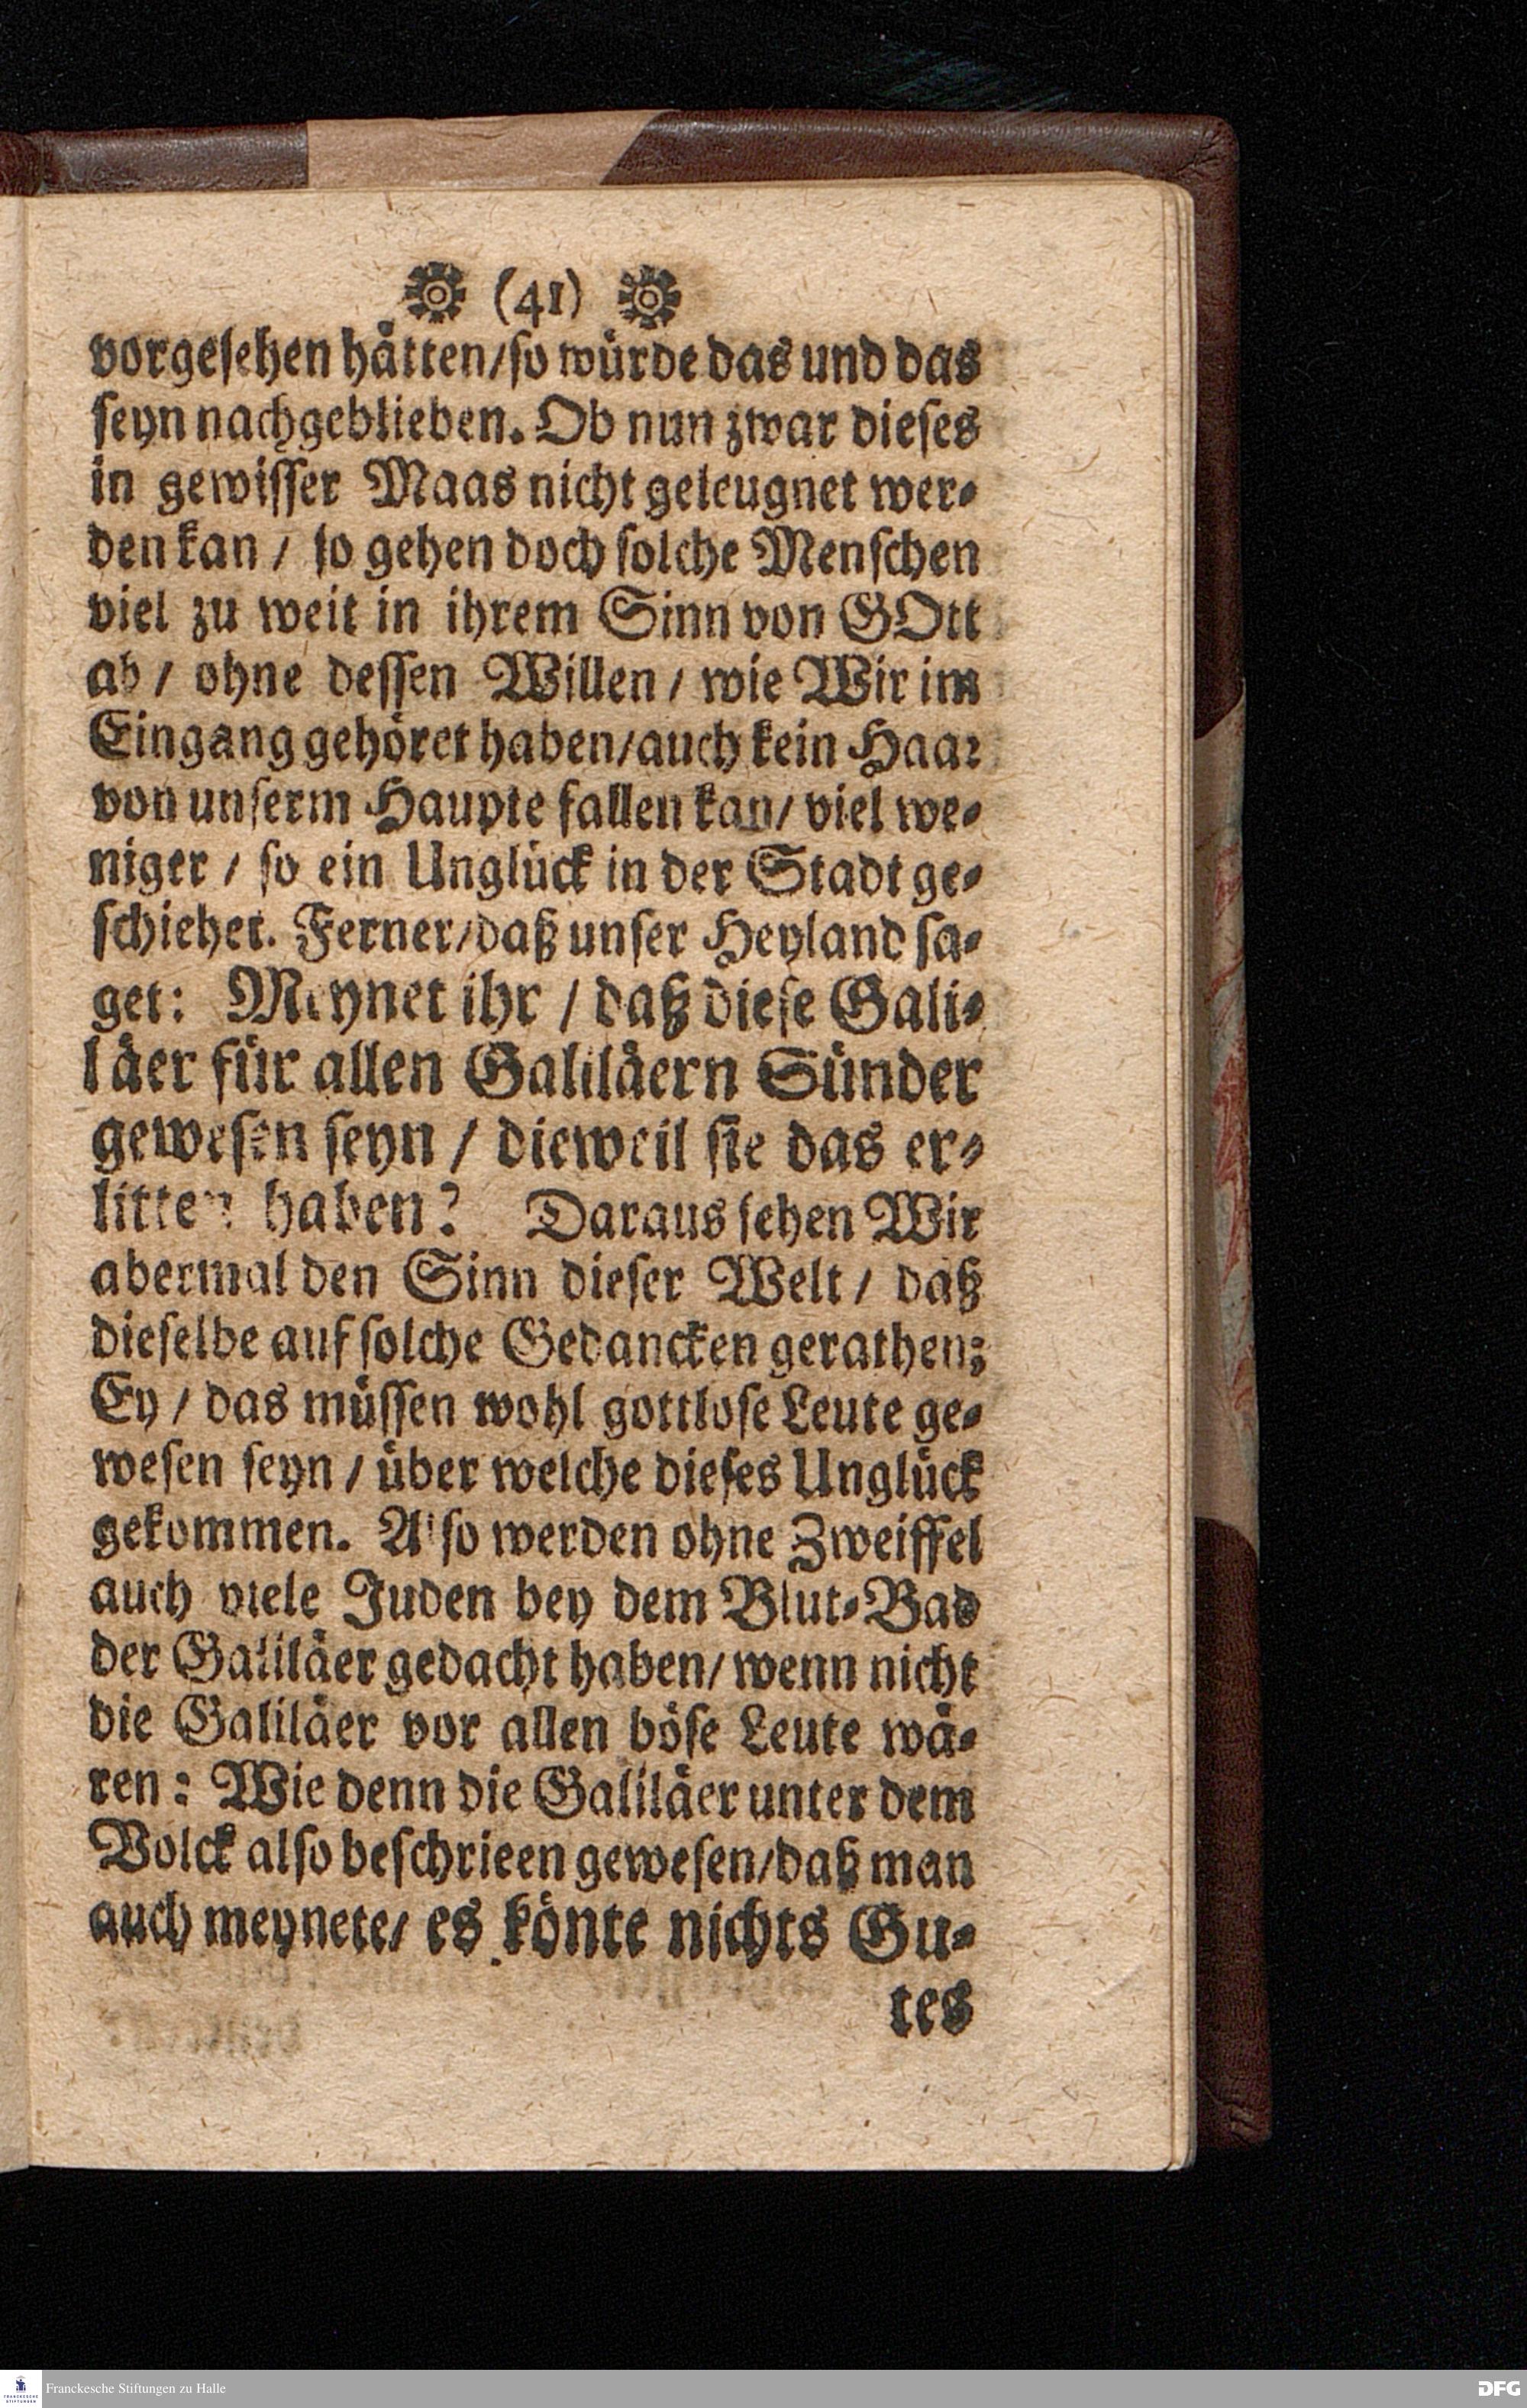 (41)
vorgesehen hätten/so würde das und das
seyn nachgeblieben. Ob nun zwar dieses
in gewisser Maas nicht geleugnet wer-
den kan / so gehen doch solche Menschen
viel zu weit in ihrem Sinn von GOtt
ab / ohne dessen Willen / wie Wir im
Eingang gehöret haben/auch kein Haar
von unserm Haupte fallen kan/ viel we-
niger / so ein Unglück in der Stadt ge-
schiehet. Ferner/daß unser Heyland sa-
get: Meynet ihr / daß diese Gali-
läer für allen Galiläern Sünder
gewesen seyn / dieweil sie das er-
litten haben? Daraus sehen Wir
abermal den Sinn dieser Welt / daß
dieselbe auf solche Gedancken gerathen:
Ey / das müssen wohl gottlose Leute ge-
wesen seyn / über welche dieses Unglück
gekommen. Also werden ohne Zweiffel
auch viele Juden bey dem Blut-Bad
der Galiläer gedacht haben/ wenn nicht
die Galiläer vor allen böse Leute wä-
ren: Wie denn die Galiläer unter dem
Volck also beschrieen gewesen/daß man
auch meynete/ es könte nichts Gu-
tes
Franckesche Stiftungen zu Halle
DFG